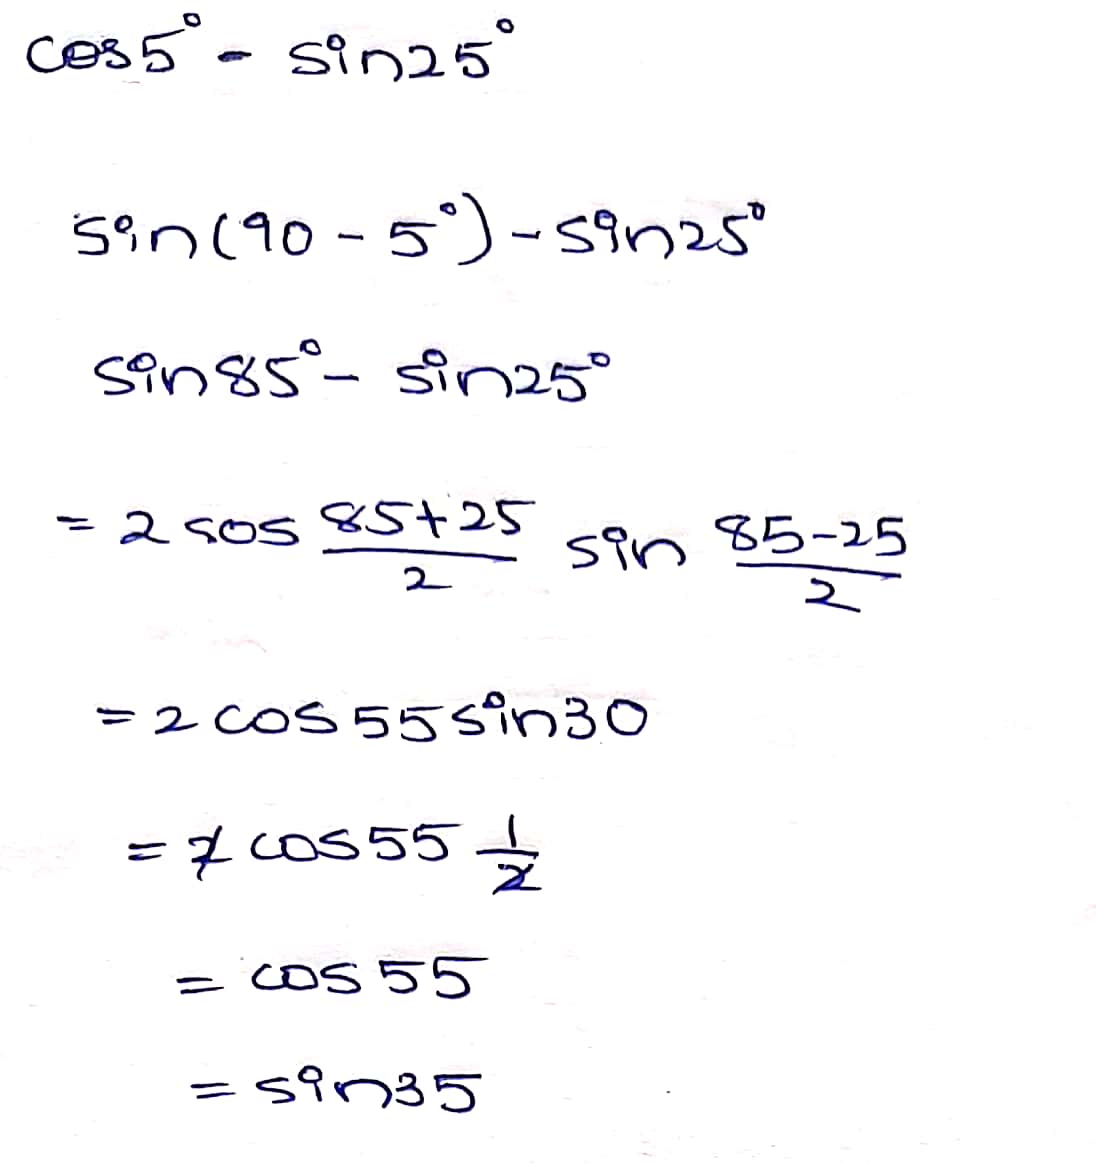 cos5° - sin25°
sin(90 - 5°) - sin25°
sin85° - sin25°
= 2 cos 85+25/2 sin 85-25/2
= 2 cos 55 sin30
= 2 cos55 1/2
= cos 55
= sin35